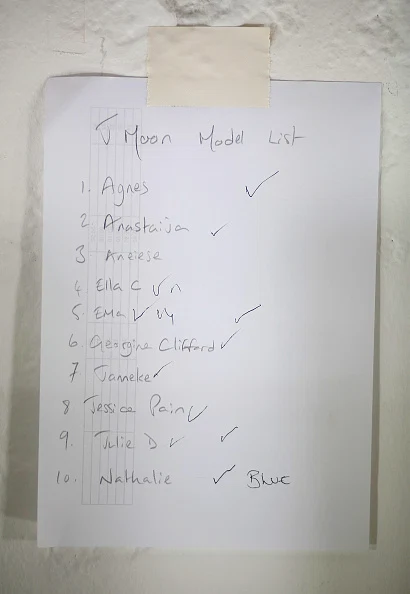 J Moon Model List
1. Agnes ✓
2 Anastaija ✓
3 Aneiese
4 Ella C ✓
5. Ema ✓ ✓
6. Georgine Clifford ✓
7 Jameke ✓
8 Jessica Pain ✓
9. Julie D ✓ ✓
10. Nathalie ✓ Blue